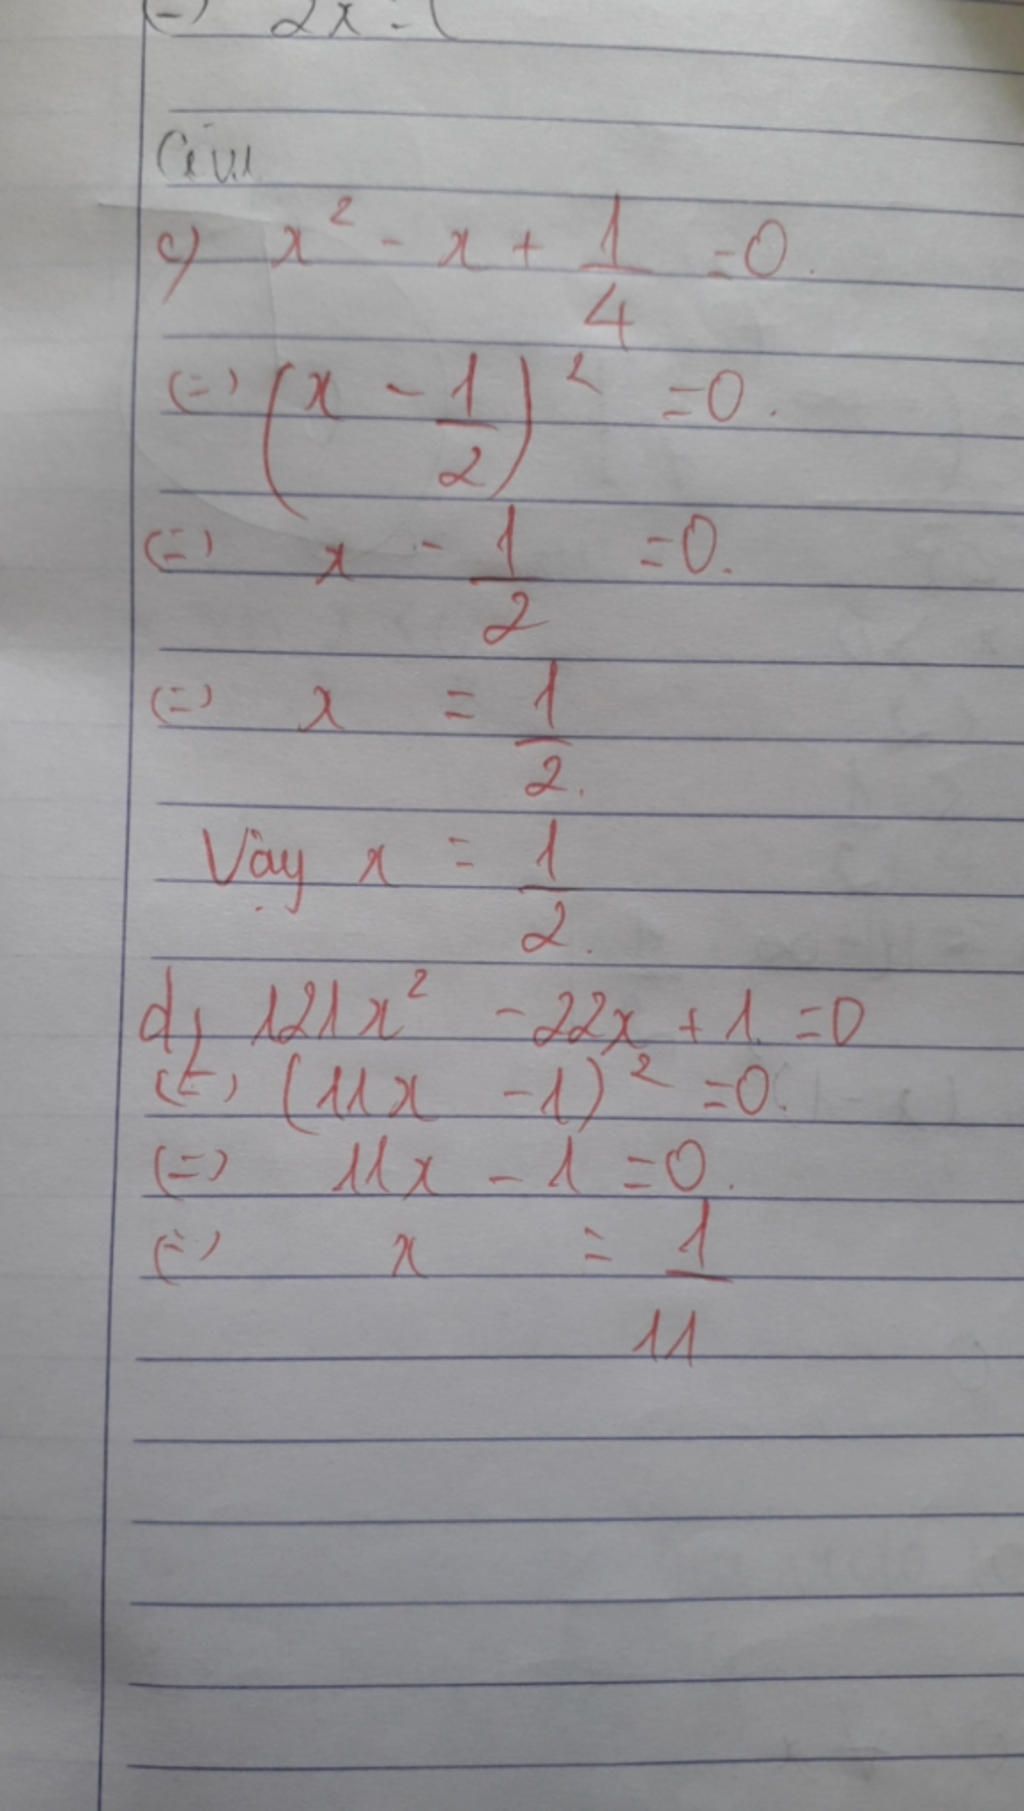 (=) 2x = 1
c) x² - x + 1/4 = 0.
(=) (x - 1/2)² = 0.
(=) x - 1/2 = 0.
(=) x = 1/2.
Vậy x = 1/2.
d) 121x² - 22x + 1 = 0
(=) (11x - 1)² = 0.
(=) 11x - 1 = 0.
(=) x = 1/11